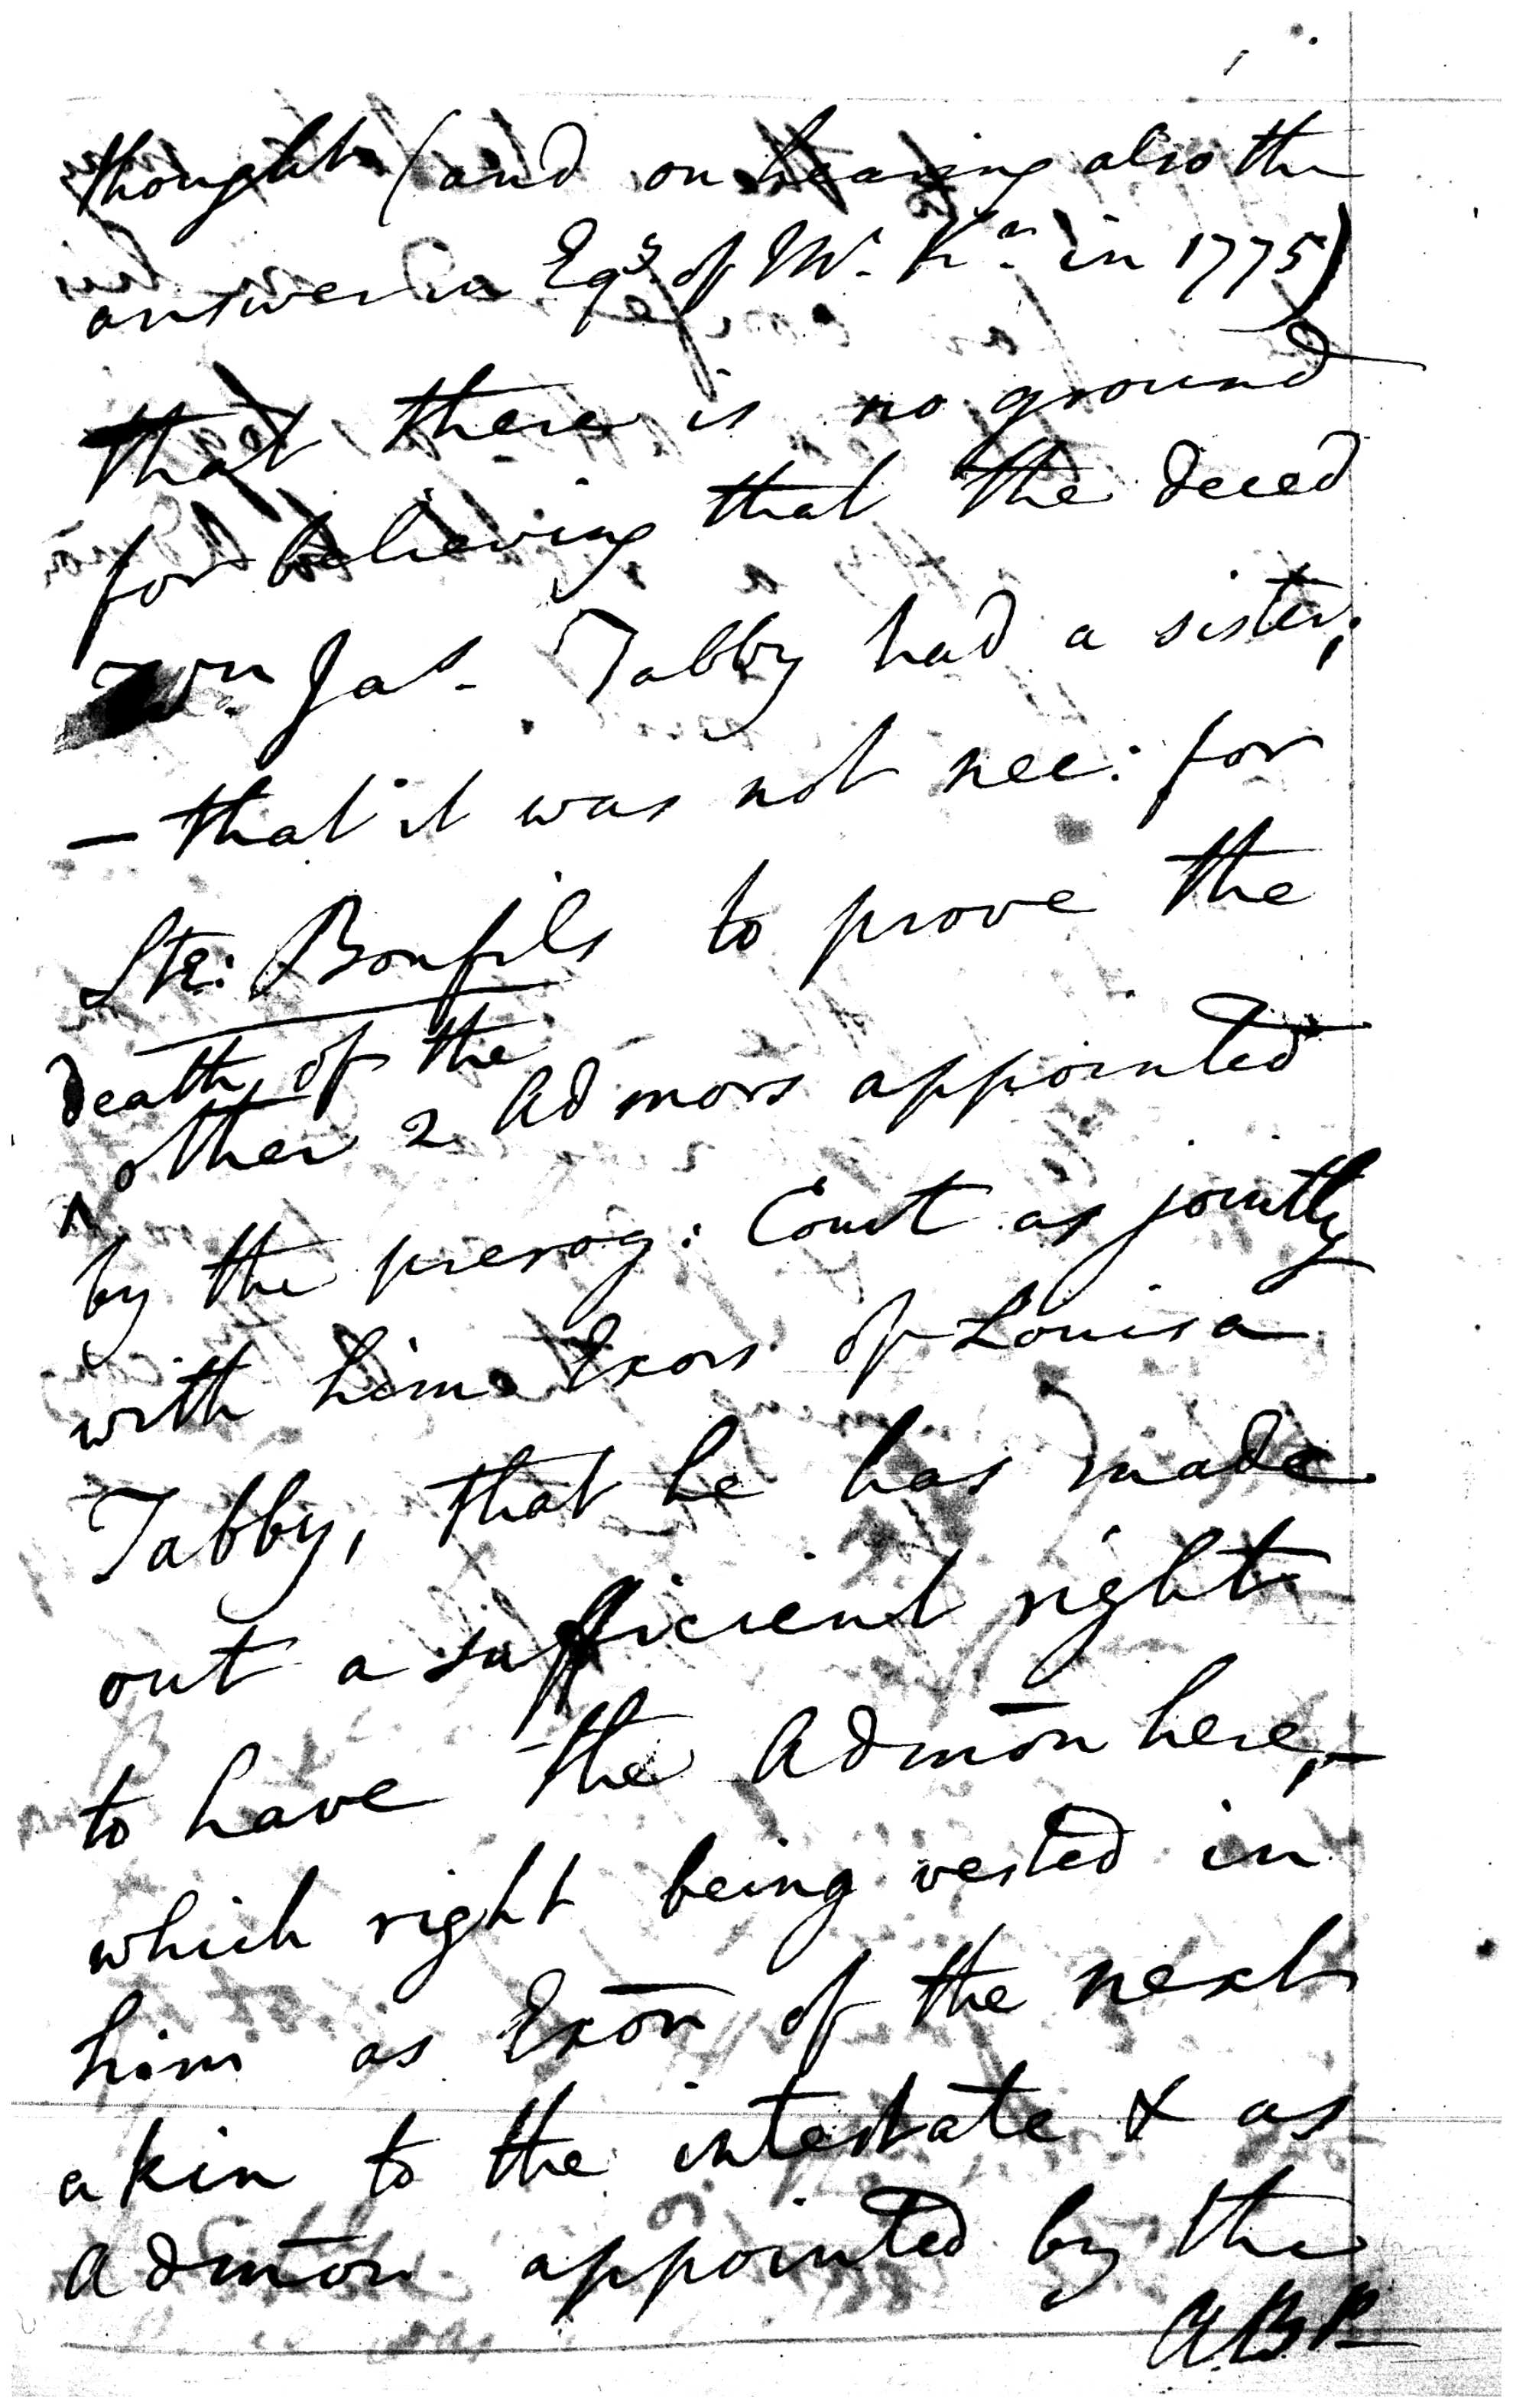 thought (and on hearing also the
answer in Eqy of Mr. Kn. in 1775)
that there is no ground
for believing that the deced
Wm Jas. Tabby had a sister;
— that it was not nec: for
Ste: Bonfils to prove the
death of the
^ other 2 Admors appointed
by the prerog: Court as jointly
with him Exors of Louisa
Tabby, that he has made
out a sufficient right
to have the Admōn here, —
which right being vested in
him as Exōr of the next
akin to the intestate & as
Admōr appointed by the
ABP